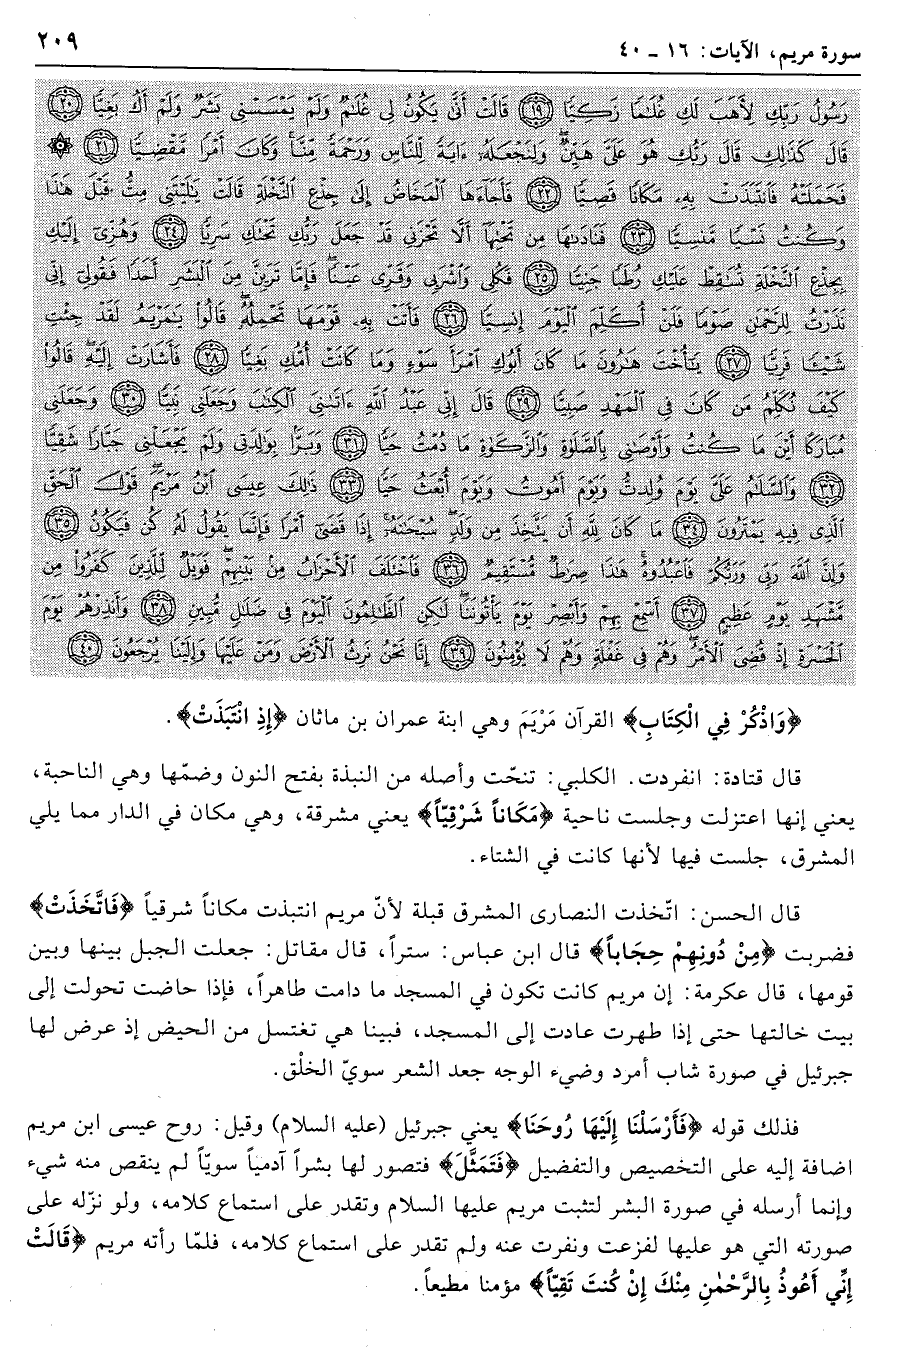 سورة مريم، الآيات: ١٦ ـ ٤٠
٢٠٩
رَسُولُ رَبِّكِ لِأَهَبَ لَكِ غُلَٰمًا زَكِيًّا ﴿١٩﴾ قَالَتْ أَنَّىٰ يَكُونُ لِي غُلَٰمٌ وَلَمْ يَمْسَسْنِي بَشَرٌ وَلَمْ أَكُ بَغِيًّا ﴿٢٠﴾
قَالَ كَذَٰلِكِ قَالَ رَبُّكِ هُوَ عَلَيَّ هَيِّنٌ ۖ وَلِنَجْعَلَهُۥٓ ءَايَةً لِّلنَّاسِ وَرَحْمَةً مِّنَّا ۚ وَكَانَ أَمْرًا مَّقْضِيًّا ﴿٢١﴾ ۞
فَحَمَلَتْهُ فَٱنتَبَذَتْ بِهِۦ مَكَانًا قَصِيًّا ﴿٢٢﴾ فَأَجَآءَهَا ٱلْمَخَاضُ إِلَىٰ جِذْعِ ٱلنَّخْلَةِ قَالَتْ يَٰلَيْتَنِي مِتُّ قَبْلَ هَٰذَا
وَكُنتُ نَسْيًا مَّنسِيًّا ﴿٢٣﴾ فَنَادَىٰهَا مِن تَحْتِهَآ أَلَّا تَحْزَنِي قَدْ جَعَلَ رَبُّكِ تَحْتَكِ سَرِيًّا ﴿٢٤﴾ وَهُزِّيٓ إِلَيْكِ
بِجِذْعِ ٱلنَّخْلَةِ تُسَٰقِطْ عَلَيْكِ رُطَبًا جَنِيًّا ﴿٢٥﴾ فَكُلِي وَٱشْرَبِي وَقَرِّي عَيْنًا ۖ فَإِمَّا تَرَيِنَّ مِنَ ٱلْبَشَرِ أَحَدًا فَقُولِيٓ إِنِّي
نَذَرْتُ لِلرَّحْمَٰنِ صَوْمًا فَلَنْ أُكَلِّمَ ٱلْيَوْمَ إِنسِيًّا ﴿٢٦﴾ فَأَتَتْ بِهِۦ قَوْمَهَا تَحْمِلُهُۥ ۖ قَالُوا۟ يَٰمَرْيَمُ لَقَدْ جِئْتِ
شَيْـًٔا فَرِيًّا ﴿٢٧﴾ يَٰٓأُخْتَ هَٰرُونَ مَا كَانَ أَبُوكِ ٱمْرَأَ سَوْءٍ وَمَا كَانَتْ أُمُّكِ بَغِيًّا ﴿٢٨﴾ فَأَشَارَتْ إِلَيْهِ ۖ قَالُوا۟
كَيْفَ نُكَلِّمُ مَن كَانَ فِي ٱلْمَهْدِ صَبِيًّا ﴿٢٩﴾ قَالَ إِنِّي عَبْدُ ٱللَّهِ ءَاتَىٰنِيَ ٱلْكِتَٰبَ وَجَعَلَنِي نَبِيًّا ﴿٣٠﴾ وَجَعَلَنِي
مُبَارَكًا أَيْنَ مَا كُنتُ وَأَوْصَٰنِي بِٱلصَّلَوٰةِ وَٱلزَّكَوٰةِ مَا دُمْتُ حَيًّا ﴿٣١﴾ وَبَرًّۢا بِوَٰلِدَتِي وَلَمْ يَجْعَلْنِي جَبَّارًا شَقِيًّا
﴿٣٢﴾ وَٱلسَّلَٰمُ عَلَيَّ يَوْمَ وُلِدتُّ وَيَوْمَ أَمُوتُ وَيَوْمَ أُبْعَثُ حَيًّا ﴿٣٣﴾ ذَٰلِكَ عِيسَى ٱبْنُ مَرْيَمَ ۚ قَوْلَ ٱلْحَقِّ
ٱلَّذِي فِيهِ يَمْتَرُونَ ﴿٣٤﴾ مَا كَانَ لِلَّهِ أَن يَتَّخِذَ مِن وَلَدٍ ۖ سُبْحَٰنَهُۥٓ ۚ إِذَا قَضَىٰٓ أَمْرًا فَإِنَّمَا يَقُولُ لَهُۥ كُن فَيَكُونُ ﴿٣٥﴾
وَإِنَّ ٱللَّهَ رَبِّي وَرَبُّكُمْ فَٱعْبُدُوهُ ۚ هَٰذَا صِرَٰطٌ مُّسْتَقِيمٌ ﴿٣٦﴾ فَٱخْتَلَفَ ٱلْأَحْزَابُ مِنۢ بَيْنِهِمْ ۖ فَوَيْلٌ لِّلَّذِينَ كَفَرُوا۟ مِن
مَّشْهَدِ يَوْمٍ عَظِيمٍ ﴿٣٧﴾ أَسْمِعْ بِهِمْ وَأَبْصِرْ يَوْمَ يَأْتُونَنَا ۖ لَٰكِنِ ٱلظَّٰلِمُونَ ٱلْيَوْمَ فِي ضَلَٰلٍ مُّبِينٍ ﴿٣٨﴾ وَأَنذِرْهُمْ يَوْمَ
ٱلْحَسْرَةِ إِذْ قُضِيَ ٱلْأَمْرُ وَهُمْ فِي غَفْلَةٍ وَهُمْ لَا يُؤْمِنُونَ ﴿٣٩﴾ إِنَّا نَحْنُ نَرِثُ ٱلْأَرْضَ وَمَنْ عَلَيْهَا وَإِلَيْنَا يُرْجَعُونَ ﴿٤٠﴾
﴿وَاذْكُرْ فِي الْكِتَابِ﴾ القرآن مَرْيَمَ وهي ابنة عمران بن ماثان ﴿إِذِ انْتَبَذَتْ﴾ .
قال قتادة: انفردت. الكلبي: تنحّت وأصله من النبذة بفتح النون وضمّها وهي الناحية،
يعني إنها اعتزلت وجلست ناحية ﴿مَكَاناً شَرْقِيّاً﴾ يعني مشرقة، وهي مكان في الدار مما يلي
المشرق، جلست فيها لأنها كانت في الشتاء.
قال الحسن: اتّخذت النصارى المشرق قبلة لأنّ مريم انتبذت مكاناً شرقياً ﴿فَاتَّخَذَتْ﴾
فضربت ﴿مِنْ دُونِهِمْ حِجَاباً﴾ قال ابن عباس: ستراً، قال مقاتل: جعلت الجبل بينها وبين
قومها، قال عكرمة: إن مريم كانت تكون في المسجد ما دامت طاهراً، فإذا حاضت تحولت إلى
بيت خالتها حتى إذا طهرت عادت إلى المسجد، فبينا هي تغتسل من الحيض إذ عرض لها
جبرئيل في صورة شاب أمرد وضيء الوجه جعد الشعر سويّ الخلْق.
فذلك قوله ﴿فَأَرْسَلْنَا إِلَيْهَا رُوحَنَا﴾ يعني جبرئيل (عليه السلام) وقيل: روح عيسى ابن مريم
اضافة إليه على التخصيص والتفضيل ﴿فَتَمَثَّلَ﴾ فتصور لها بشراً آدمياً سويّاً لم ينقص منه شيء
وإنما أرسله في صورة البشر لتثبت مريم عليها السلام وتقدر على استماع كلامه، ولو نزّله على
صورته التي هو عليها لفزعت ونفرت عنه ولم تقدر على استماع كلامه، فلمّا رأته مريم ﴿قَالَتْ
إِنِّي أَعُوذُ بِالرَّحْمٰنِ مِنْكَ إِنْ كُنتَ تَقِيّاً﴾ مؤمنا مطيعاً.